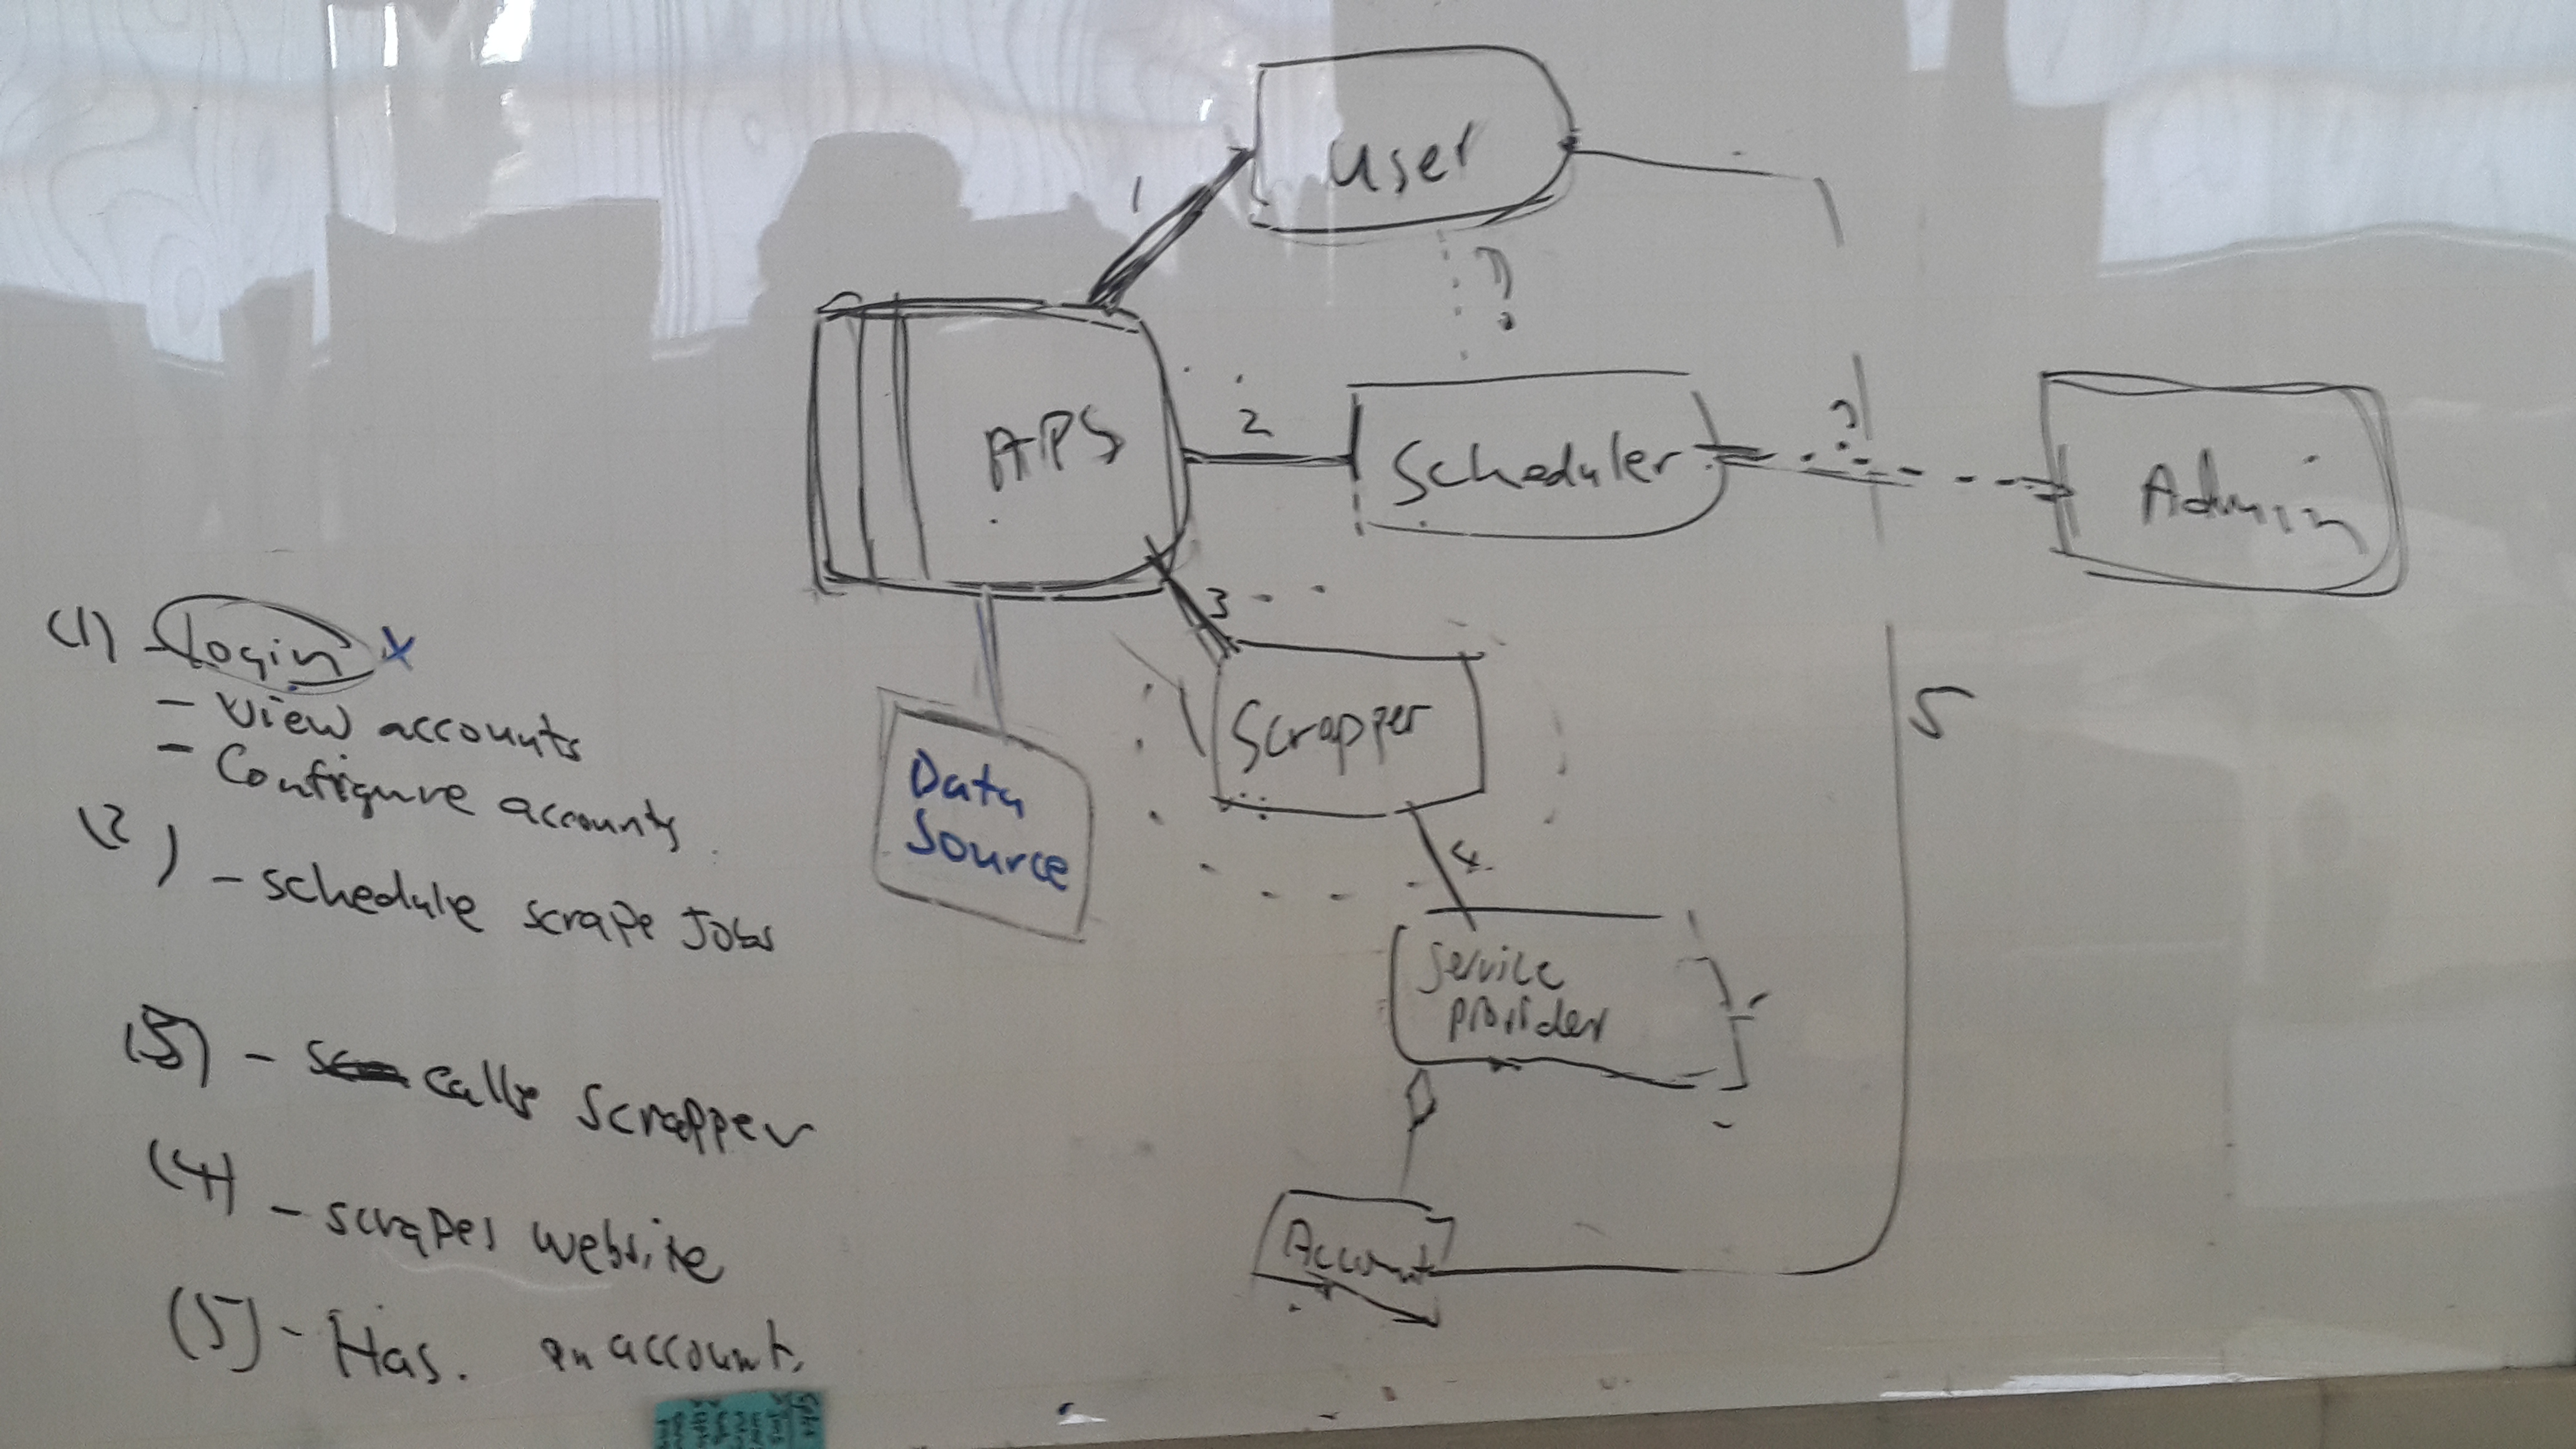 User
1
?
APS
2
Scheduler
?
Admin
3
Scrapper
5
Data
Source
4
Service
provider
Account
(1) - Login x
- View accounts
- Configure accounts
(2) - schedule scrape Jobs
(3) - calls Scrapper
(4) - scrapes website
(5) - Has. an account.